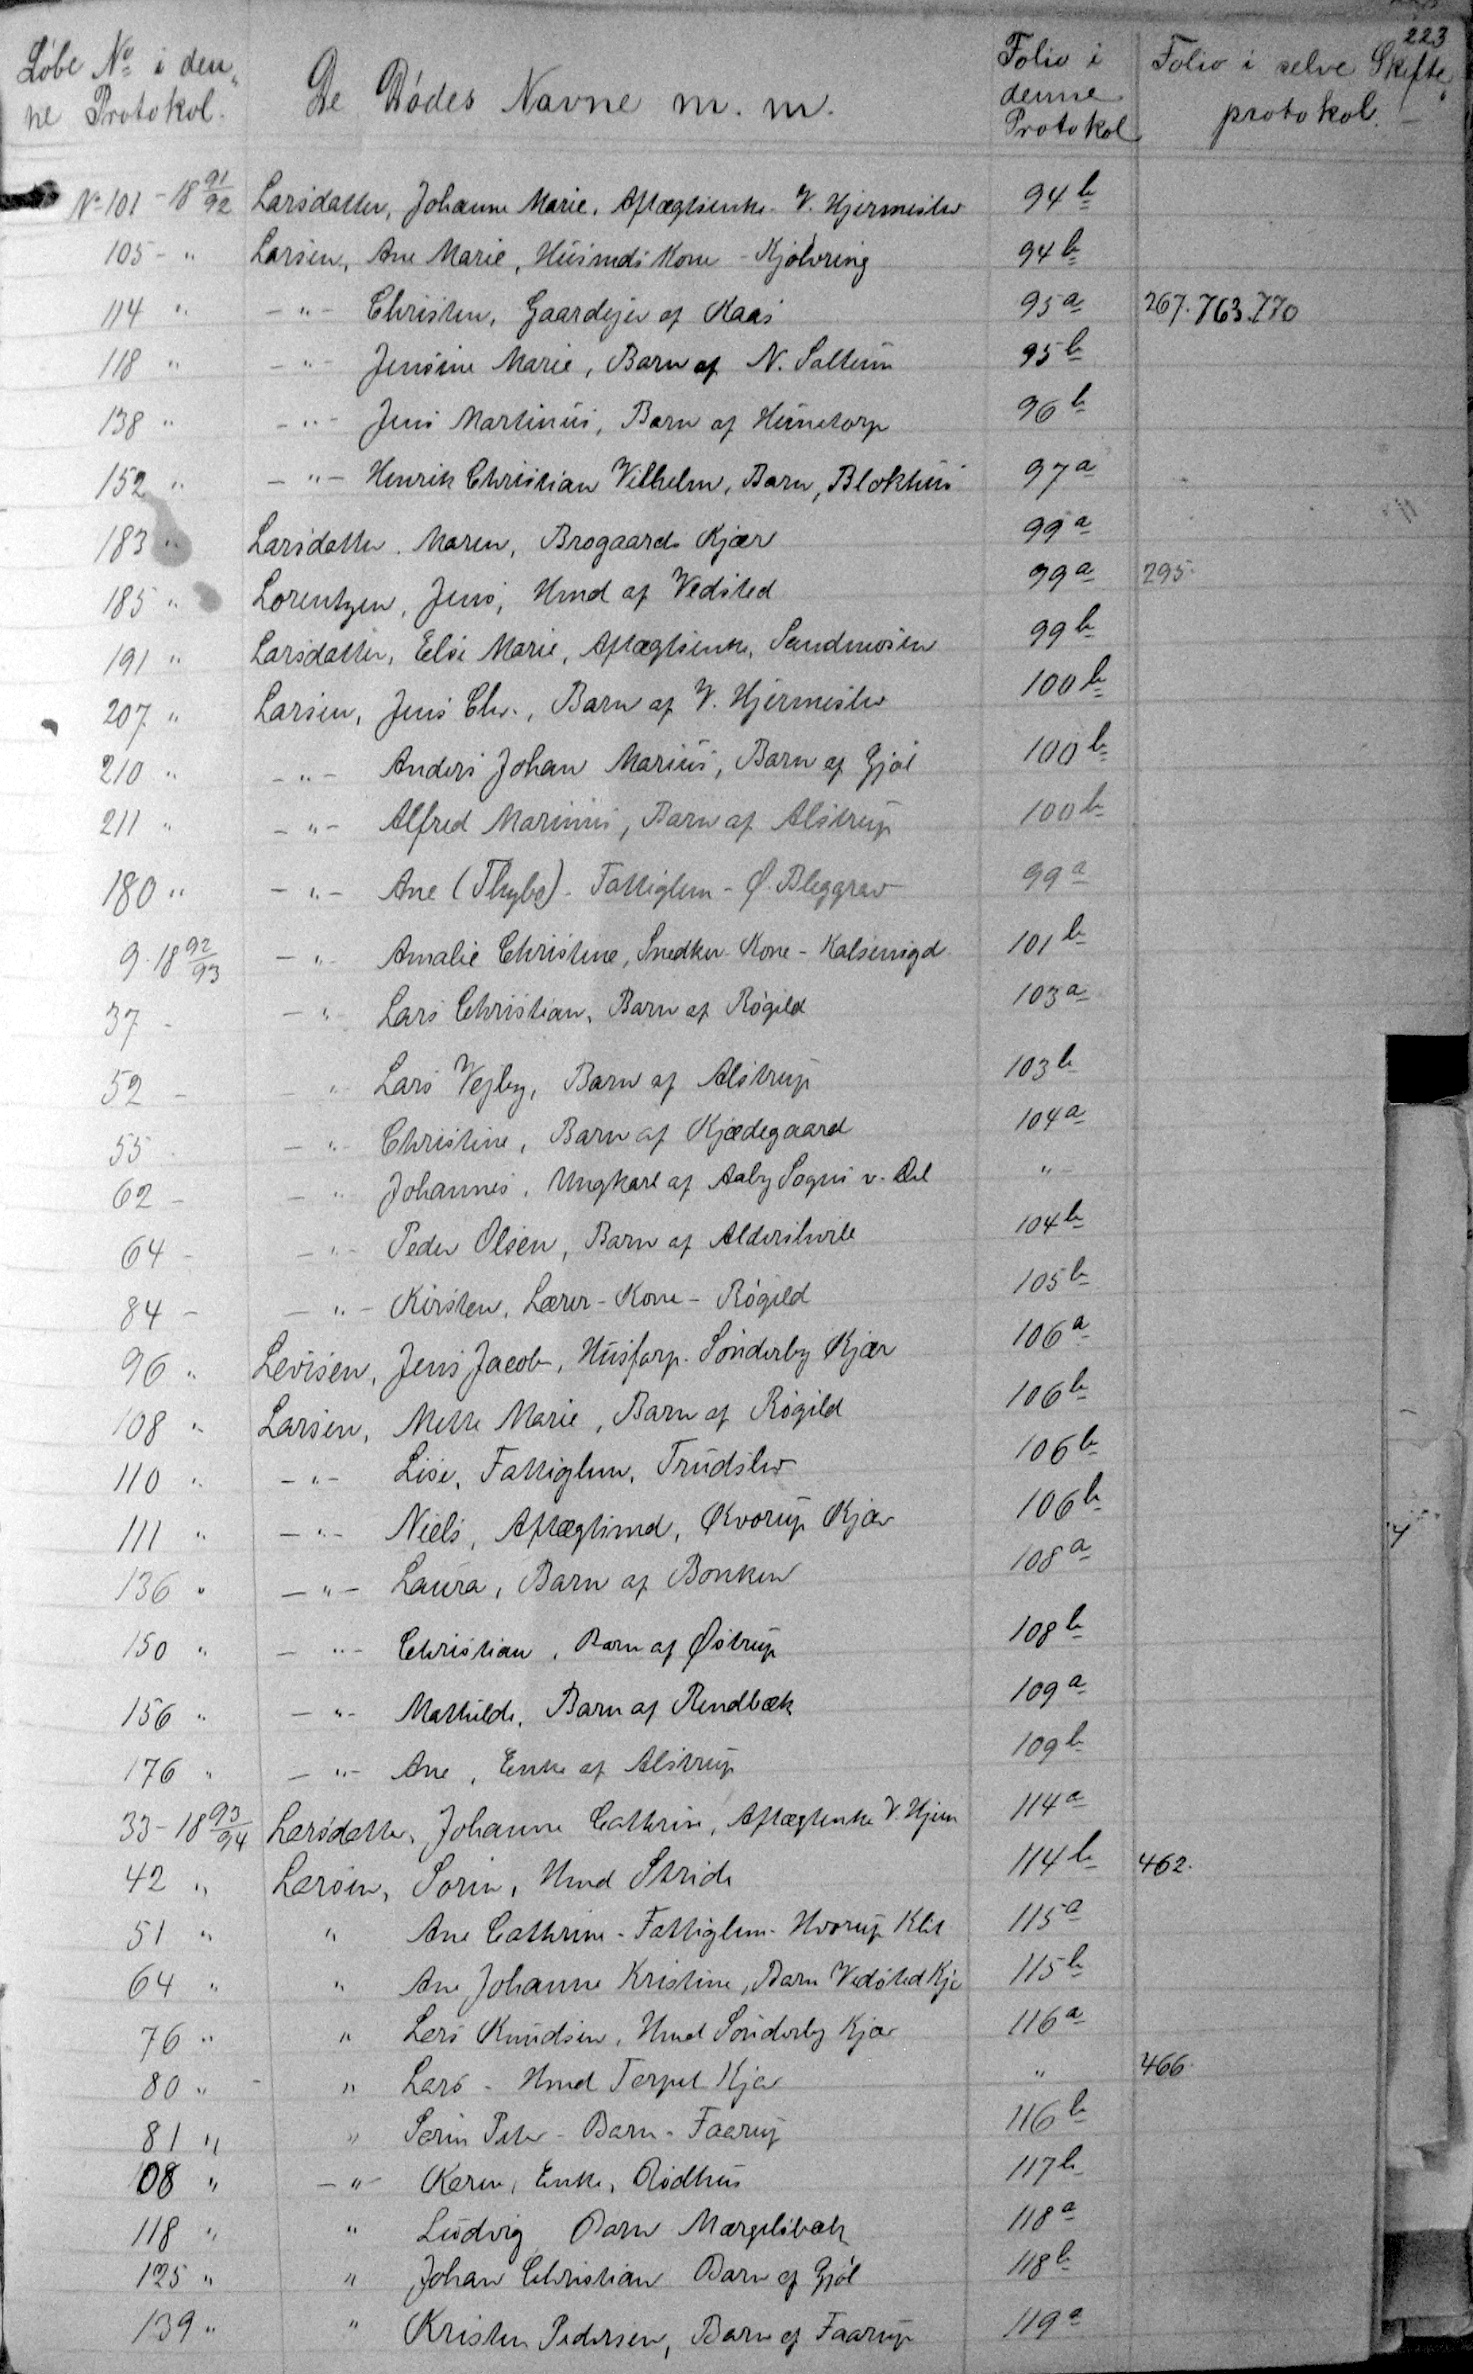 223
Løbe No i den- De Dødes Navne m. m. Folio i Folio i selve Skifte
ne Protokol. denne protokol.
Protokol
No 101 - 18 91/92 Larsdatter, Johanne Marie, Aftægtsenke V. Hjermeslev 94 b
105 - " Larsen, Ane Marie, Husmds Kone - Kjølvring 94 b
114 " - " - Christen, Gaardejer af Kaas 95 a 267. 763. 770
118 " - " - Jensine Marie, Barn af N. Saltum 95 b
138 " - " - Jens Martinus, Barn af Hunetorp 96 b
152 " - " - Henrik Christian Vilhelm, Barn, Blokhus 97 a
183 " Larsdatter, Maren, Brogaards Kjær 99 a
185 " Lorentzen, Jens, Hmd af Vedsted 99 a 295.
191 " Larsdatter, Else Marie, Aftægtsenke, Sandmosen 99 b
207 " Larsen, Jens Chr., Barn af V. Hjermeslev 100 b
210 " - " - Anders Johan Marius, Barn af Gjøl 100 b
211 " - " - Alfred Marinus, Barn af Alstrup 100 b
180 " - " - Ane (Thybo) - Fattiglem - Ø. Bleggrav 99 a
9. 18 92/93 - " - Amalie Christine, Snedker Kone - 101 b
37 - - " Lars Christian, Barn af Røgild 103 a
52 - - " Lars Vejby, Barn af Alstrup 103 b
55 - " - Christine, Barn af Kjædegaard 104 a
62 - - " Johannes, Ungkarl af Aaby Sogns v. Del "
64 - - " - Peder Olsen, Barn af 104 b
84 - - " - Kirsten, Lærer - Kone - Røgild 105 b
96 " Levisen, Jens Jacob, Husforp. Sønderby Kjær 106 a
108 " Larsen, Mette Marie, Barn af Røgild 106 b
110 " - " - Lise, Fattiglem, Trudslev 106 b
111 " - " - Niels, Aftægtsmd, Kvorup Kjær 106 b
136 " - " - Laura, Barn af Bonken 108 a
150 " - " - Christian, Barn af Østrup 108 b
156 " - " - Mathilde, Barn af Rendbæk 109 a
176 " - " - Ane, Enke af Alstrup 109 b
33 - 18 93/94 Larsdatter, Johanne Cathrine, Aftægtenke V. Hjerm 114 a
42 " Larsen, Søren, Hmd Stride 114 b 462.
51 " " Ane Cathrine - Fattiglem - Hvorup Klit 115 a
64 " " Ane Johanne Kristine, Barn Vedsted Kjæ 115 b
76 " " Lars Knudsen, Hmd Sønderby Kjær 116 a
80 " - " Lars - Hmd Torpet Kjær " 466.
81 " " Søren Peter - Barn - Faarup 116 b
108 " - " - Karen, Enke, Rødhus 117 b
118 " " Ludvig Barn Mærgelsbæk 118 a
125 " " Johan Christian Barn af Gjøl 118 b
139 " " Kristen Pedersen, Barn af Faarup 119 a